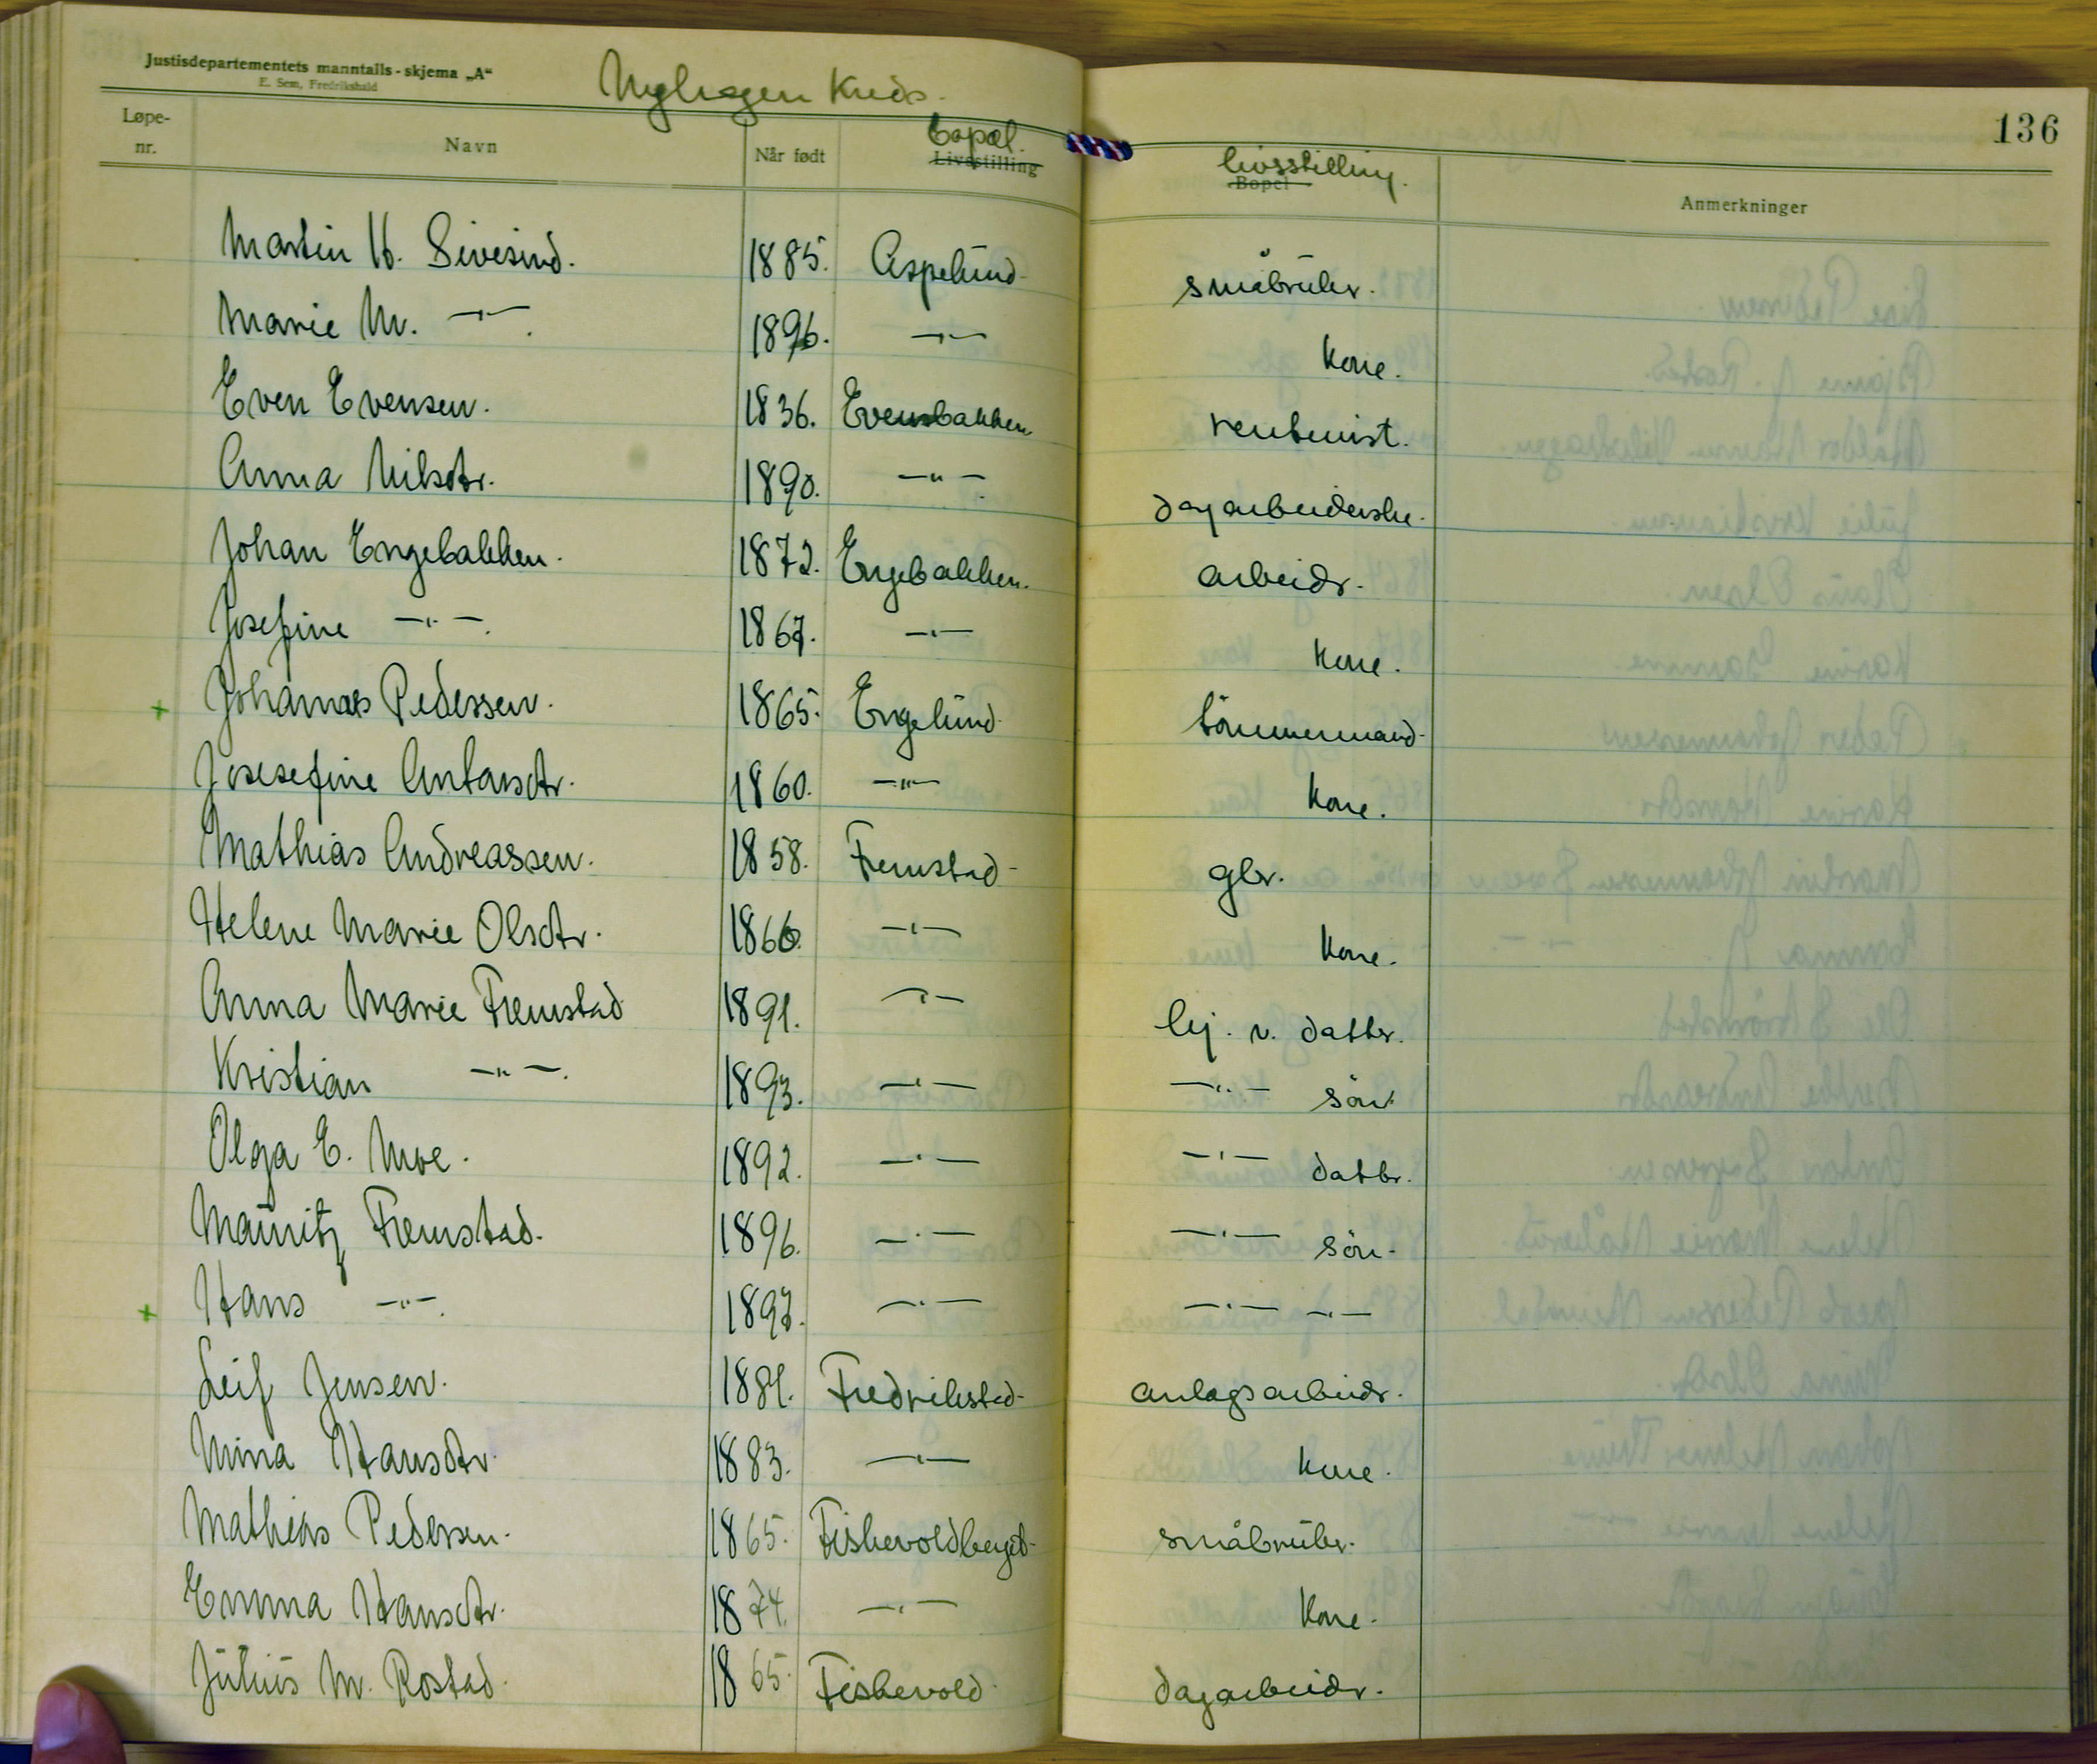 Justisdepartementets manntalls-skjema „A"
E. Sem, Fredrikshald
Nyhagen Kreds.
136
Løpe-nr. Navn Når født Bopæl. Livsstilling livsstilling. Bopel Anmerkninger
Martin H. Sivesind. 1885. Aspelund småbruker.
Marie M. —"—. 1896. —"— kone.
Even Evensen. 1836. Evensbakken rentenist.
Anna Nilsdtr. 1890. —"— dagarbeiderske.
Johan Engebakken. 1872. Engebakken. arbeidr.
Josefine —"—. 1867. —"— kone.
+ Johannes Pedersen. 1865. Engelund tömmermand
Josesefine Antonsdtr. 1860. —"— kone.
Mathias Andreassen. 1858. Fremstad gbr.
Helene Marie Olsdtr. 1866. —"— kone.
Anna Marie Fremstad 1891. —"— lej. v. datter.
Kristian —"—. 1893. —"— —"— sön.
Olga E. Moe. 1892. —"— —"— datbr.
Mauritz Fremstad. 1896. —"— —"— sön.
+ Hans —"—. 1897. —"— —"— —"—
Leif Jensen. 1881. Fredrikstad anlagsarbeidr.
Mina Hansdtr. 1883. —"— kone.
Mathias Pedersen. 1865. Fiskevoldberget småbruker.
Emma Hansdtr. 1874. —"— kone.
Julius M. Rostad. 1865. Fiskevold dagarbeidr.